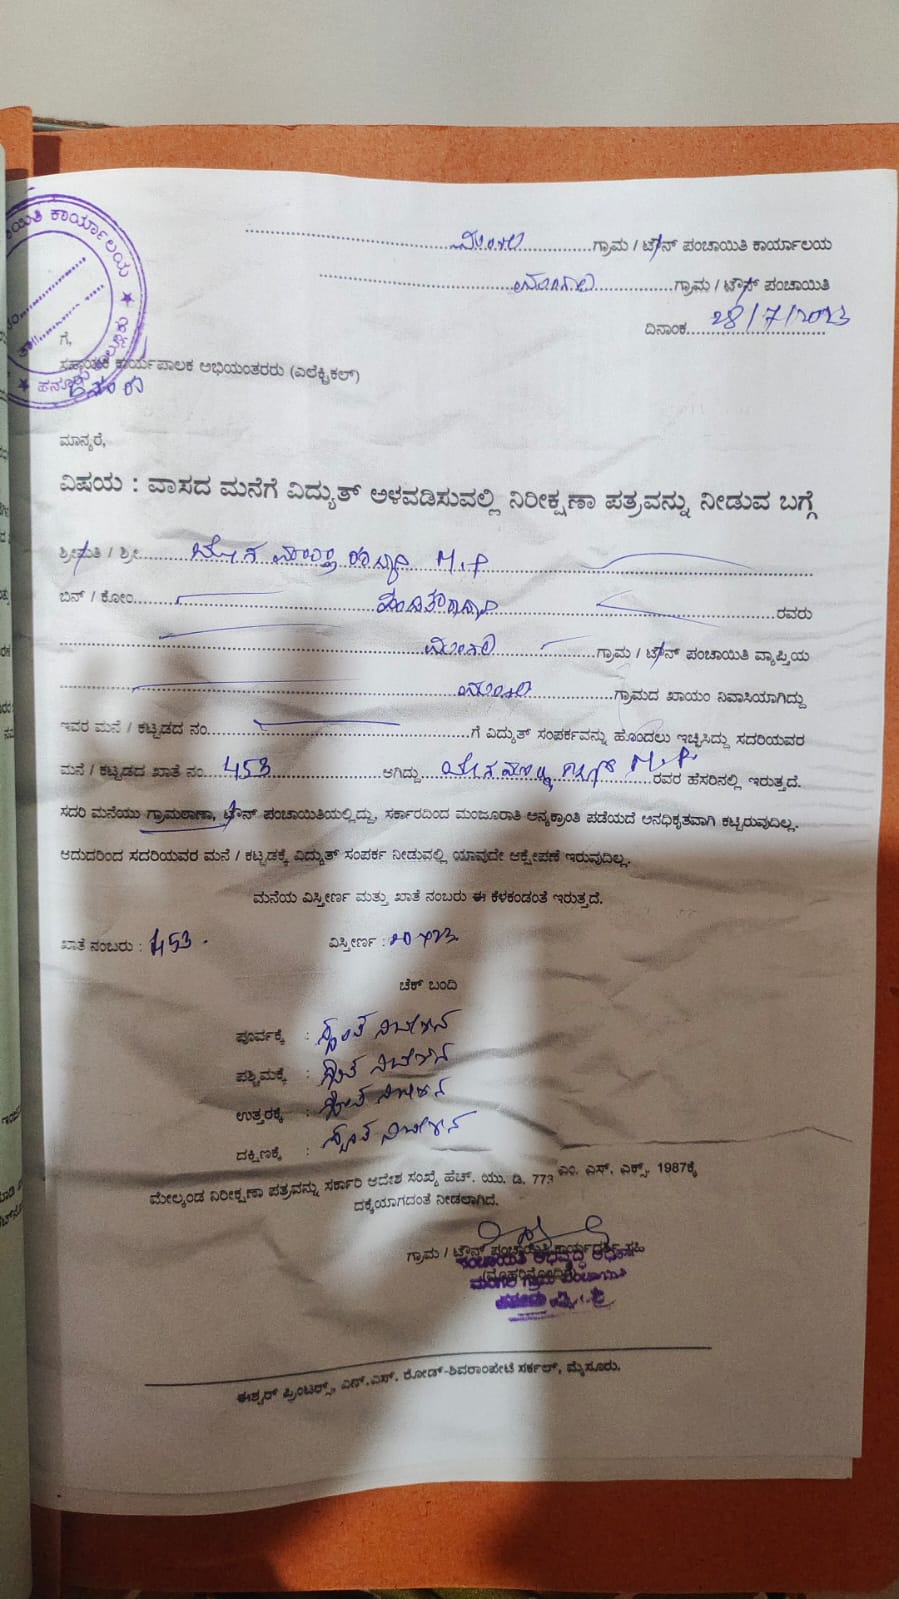 ಗ್ರಾಮ / ಟೌನ್ ಪಂಚಾಯಿತಿ ಕಾರ್ಯಾಲಯ
ಗ್ರಾಮ / ಟೌನ್ ಪಂಚಾಯಿತಿ
ದಿನಾಂಕ 28/7/2023
ಗೆ,
ಸಹಾಯಕ ಕಾರ್ಯಪಾಲಕ ಅಭಿಯಂತರರು (ಎಲೆಕ್ಟ್ರಿಕಲ್)
ಮಾನ್ಯರೆ,
ವಿಷಯ : ವಾಸದ ಮನೆಗೆ ವಿದ್ಯುತ್ ಅಳವಡಿಸುವಲ್ಲಿ ನಿರೀಕ್ಷಣಾ ಪತ್ರವನ್ನು ನೀಡುವ ಬಗ್ಗೆ
ಶ್ರೀಮತಿ / ಶ್ರೀ M.P
ಬಿನ್ / ಕೋಂ ರವರು
ಗ್ರಾಮ / ಟೌನ್ ಪಂಚಾಯಿತಿ ವ್ಯಾಪ್ತಿಯ
ಗ್ರಾಮದ ಖಾಯಂ ನಿವಾಸಿಯಾಗಿದ್ದು
ಇವರ ಮನೆ / ಕಟ್ಟಡದ ನಂ. ಗೆ ವಿದ್ಯುತ್ ಸಂಪರ್ಕವನ್ನು ಹೊಂದಲು ಇಚ್ಛಿಸಿದ್ದು ಸದರಿಯವರ
ಮನೆ / ಕಟ್ಟಡದ ಖಾತೆ ನಂ. 453 ಆಗಿದ್ದು M.P. ರವರ ಹೆಸರಿನಲ್ಲಿ ಇರುತ್ತದೆ.
ಸದರಿ ಮನೆಯು ಗ್ರಾಮಠಾಣಾ, ಟೌನ್ ಪಂಚಾಯಿತಿಯಲ್ಲಿದ್ದು, ಸರ್ಕಾರದಿಂದ ಮಂಜೂರಾತಿ ಅನ್ಯಕ್ರಾಂತಿ ಪಡೆಯದೆ ಅನಧಿಕೃತವಾಗಿ ಕಟ್ಟಿರುವುದಿಲ್ಲ.
ಆದುದರಿಂದ ಸದರಿಯವರ ಮನೆ / ಕಟ್ಟಡಕ್ಕೆ ವಿದ್ಯುತ್ ಸಂಪರ್ಕ ನೀಡುವಲ್ಲಿ ಯಾವುದೇ ಆಕ್ಷೇಪಣೆ ಇರುವುದಿಲ್ಲ.
ಮನೆಯ ವಿಸ್ತೀರ್ಣ ಮತ್ತು ಖಾತೆ ನಂಬರು ಈ ಕೆಳಕಂಡಂತೆ ಇರುತ್ತದೆ.
ಖಾತೆ ನಂಬರು : 453. ವಿಸ್ತೀರ್ಣ :
ಚೆಕ್ ಬಂದಿ
ಪೂರ್ವಕ್ಕೆ : ಸ್ವಂತ ನಿವೇಶನ
ಪಶ್ಚಿಮಕ್ಕೆ : ಸ್ವಂತ ನಿವೇಶನ
ಉತ್ತರಕ್ಕೆ : ಸ್ವಂತ ನಿವೇಶನ
ದಕ್ಷಿಣಕ್ಕೆ : ಸ್ವಂತ ನಿವೇಶನ
ಮೇಲ್ಕಂಡ ನಿರೀಕ್ಷಣಾ ಪತ್ರವನ್ನು ಸರ್ಕಾರಿ ಆದೇಶ ಸಂಖ್ಯೆ ಹೆಚ್. ಯು. ಡಿ. 773 ಎಂ. ಎಸ್. ಎಕ್ಸ್. 1987ಕ್ಕೆ
ದಕ್ಕೆಯಾಗದಂತೆ ನೀಡಲಾಗಿದೆ.
ಗ್ರಾಮ / ಟೌನ್ ಪಂಚಾಯಿತಿ ಕಾರ್ಯದರ್ಶಿ ಸಹಿ
ಈಶ್ವರ್ ಪ್ರಿಂಟರ್ಸ್, ಎನ್.ಎಸ್. ರೋಡ್-ಶಿವರಾಂಪೇಟೆ ಸರ್ಕಲ್, ಮೈಸೂರು.